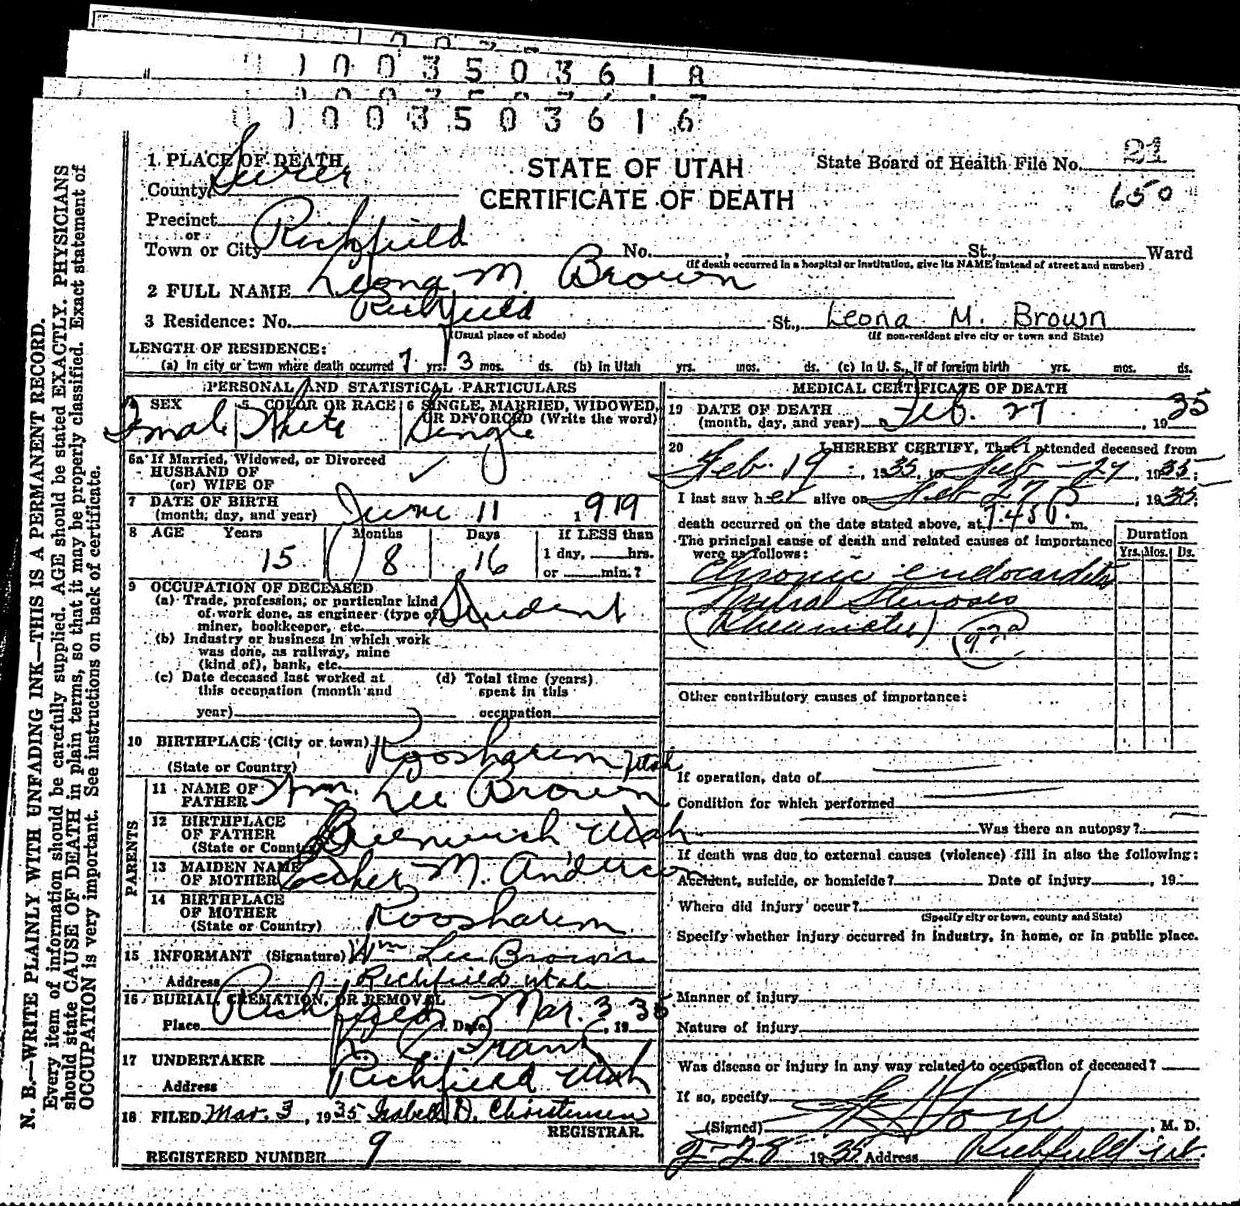 0 0 3 5 0 3 6 1 8
0 0 3 5 0 3 6 1 6
STATE OF UTAH
CERTIFICATE OF DEATH
State Board of Health File No. 21
650
1. PLACE OF DEATH
County Sevier
Precinct
or
Town or City Richfield No. St., Ward
(If death occurred in a hospital or institution, give its NAME instead of street and number)
2 FULL NAME Leona M. Brown
3 Residence: No. Richfield St., Leona M. Brown
(Usual place of abode) (If non-resident give city or town and State)
LENGTH OF RESIDENCE:
(a) In city or town where death occurred 7 yrs. 3 mos. ds. (b) In Utah yrs. mos. ds. (c) In U. S., if of foreign birth yrs. mos. ds.
PERSONAL AND STATISTICAL PARTICULARS
SEX 5 COLOR OR RACE 6 SINGLE, MARRIED, WIDOWED,
OR DIVORCED (Write the word)
Female White Single
6a If Married, Widowed, or Divorced
HUSBAND OF
(or) WIFE OF
7 DATE OF BIRTH
(month, day, and year) June 11 1919
8 AGE Years Months Days If LESS than
15 8 16 1 day, hrs.
or min.?
9 OCCUPATION OF DECEASED
(a) Trade, profession, or particular kind
of work done, as engineer (type of
miner, bookkeeper, etc. Student
(b) Industry or business in which work
was done, as railway, mine
(kind of), bank, etc.
(c) Date deceased last worked at (d) Total time (years)
this occupation (month and spent in this
year) occupation
10 BIRTHPLACE (City or town) Koosharem Utah
(State or Country)
PARENTS
11 NAME OF
FATHER Wm. Lee Brown
12 BIRTHPLACE
OF FATHER
(State or Country) Greenwich Utah
13 MAIDEN NAME
OF MOTHER Esther M. Anderson
14 BIRTHPLACE
OF MOTHER
(State or Country) Koosharem
15 INFORMANT (Signature) Wm Lee Brown
Address Richfield Utah
16 BURIAL, CREMATION, OR REMOVAL
Place Richfield Date Mar. 3 1935
17 UNDERTAKER
Address Richfield Utah
18 FILED Mar. 3, 1935 Isabell D. Christensen
REGISTRAR.
REGISTERED NUMBER 9
MEDICAL CERTIFICATE OF DEATH
19 DATE OF DEATH
(month, day, and year) Feb. 27, 1935
20 I HEREBY CERTIFY, That I attended deceased from
Feb. 19, 1935, to Feb - 27, 1935;
I last saw her alive on Feb 27, 1935
death occurred on the date stated above, at 9:45 P m.
The principal cause of death and related causes of importance
were as follows:
Duration
Yrs. Mos. Ds.
Chronic endocarditis
Mitral Stenosis
(Rheumatic) 92a
Other contributory causes of importance:
If operation, date of
Condition for which performed
Was there an autopsy?
If death was due to external causes (violence) fill in also the following:
Accident, suicide, or homicide? Date of injury , 19
Where did injury occur?
(Specify city or town, county and State)
Specify whether injury occurred in industry, in home, or in public place.
Manner of injury
Nature of injury
Was disease or injury in any way related to occupation of deceased?
If so, specify
(Signed) , M. D.
2-28 1935 Address Richfield Ut.
N. B.—WRITE PLAINLY WITH UNFADING INK—THIS IS A PERMANENT RECORD.
Every item of information should be carefully supplied. AGE should be stated EXACTLY. PHYSICIANS
should state CAUSE OF DEATH in plain terms, so that it may be properly classified. Exact statement of
OCCUPATION is very important. See instructions on back of certificate.